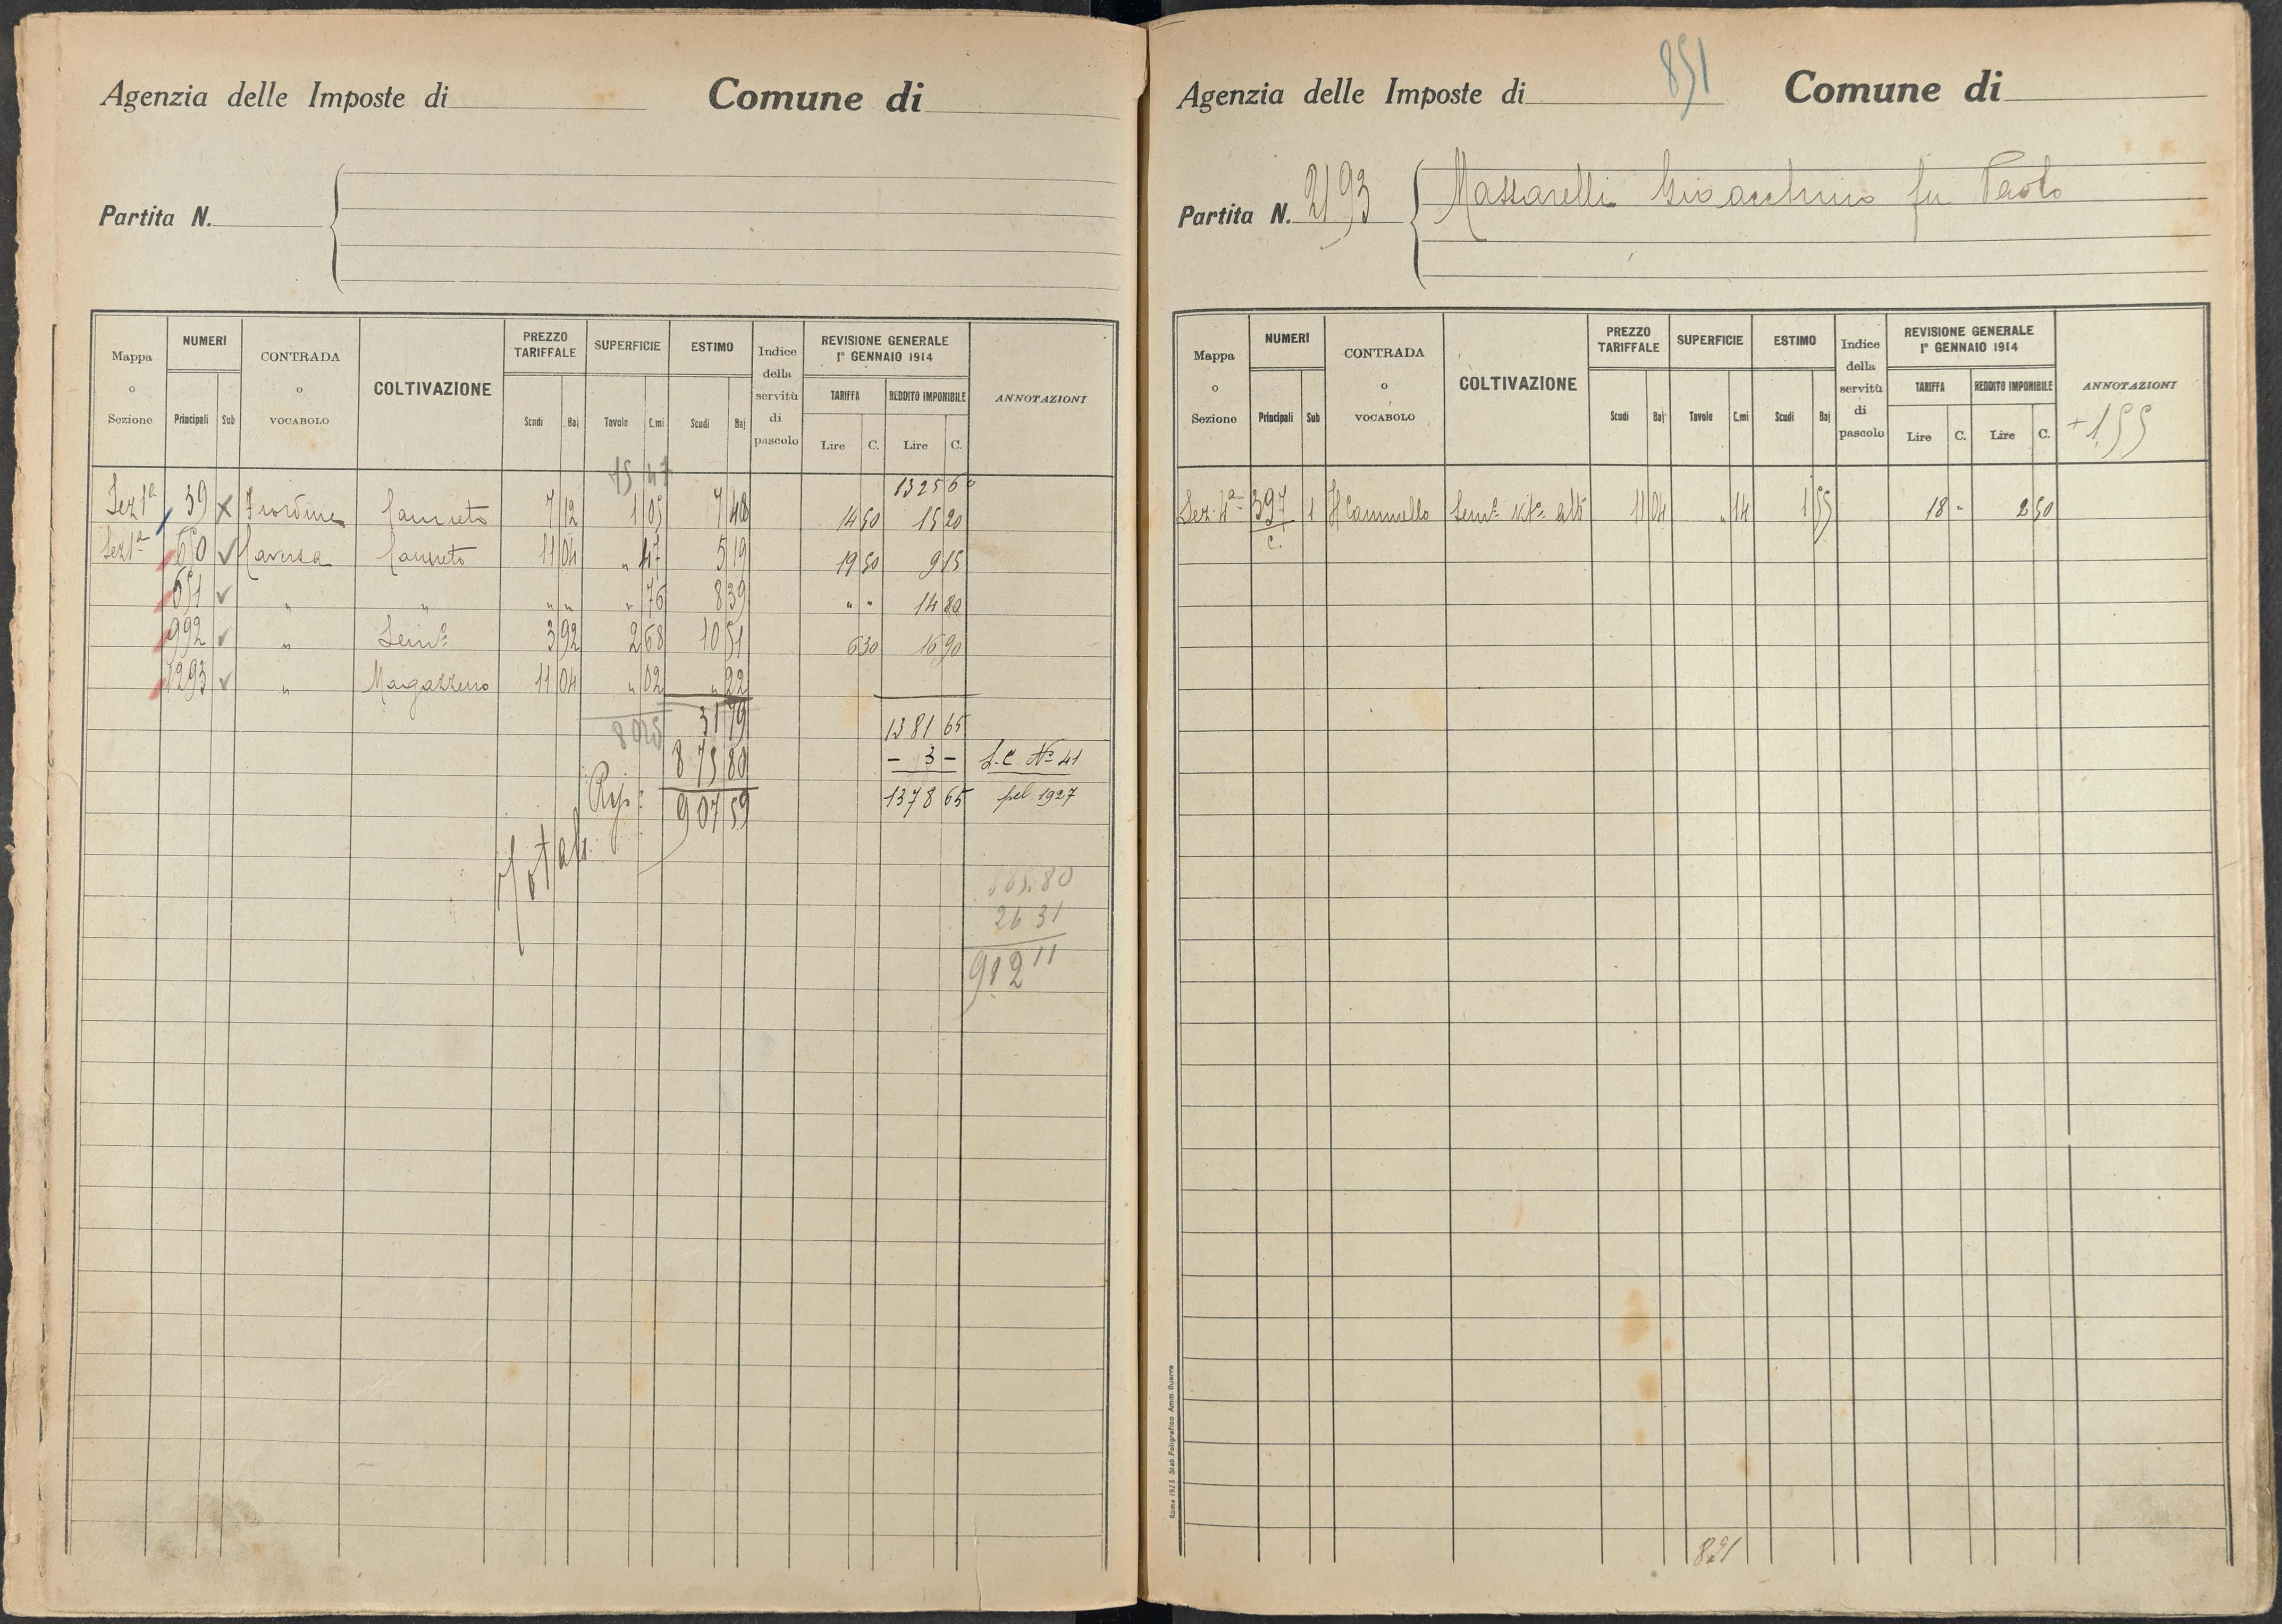 Agenzia delle Imposte di Comune di
Partita N.
Mappa o Sezione NUMERI Principali Sub CONTRADA o VOCABOLO COLTIVAZIONE PREZZO TARIFFALE Scudi Baj SUPERFICIE Tavole C.mi ESTIMO Scudi Baj Indice della servitù di pascolo REVISIONE GENERALE 1° GENNAIO 1914 TARIFFA Lire C. REDDITO IMPONIBILE Lire C. ANNOTAZIONI
75 47
1325 60
Sez 1a 39 x Fiordine Canneto 7 12 1 05 7 48 14 50 15 20
Sez 1a 650 ✓ Caversa Canneto 11 04 " 47 5 19 19 50 9 15
651 ✓ " " " " " 76 8 39 " " 14 80
992 ✓ " Semo 3 92 2 68 10 51 6 30 16 90
1293 ✓ " Magazzeno 11 04 " 02 " 22
31 79 1381 65
875 80 - 3 - L.C. No 41
Rip: 907 59 1378 65 pel 1927
Totale
26 31
912 11
851
Agenzia delle Imposte di Comune di
Partita N. 2193 Massarelli Gioacchino fu Paolo
Mappa o Sezione NUMERI Principali Sub CONTRADA o VOCABOLO COLTIVAZIONE PREZZO TARIFFALE Scudi Baj SUPERFICIE Tavole C.mi ESTIMO Scudi Baj Indice della servitù di pascolo REVISIONE GENERALE 1° GENNAIO 1914 TARIFFA Lire C. REDDITO IMPONIBILE Lire C. ANNOTAZIONI
+ 1,55
Sez. 4a 397 1 Il Cammello Semo vito alti 11 04 " 14 1 55 18 " 2 50
c.
Roma 1925 Stab. Poligrafico Amm. Guerra
851